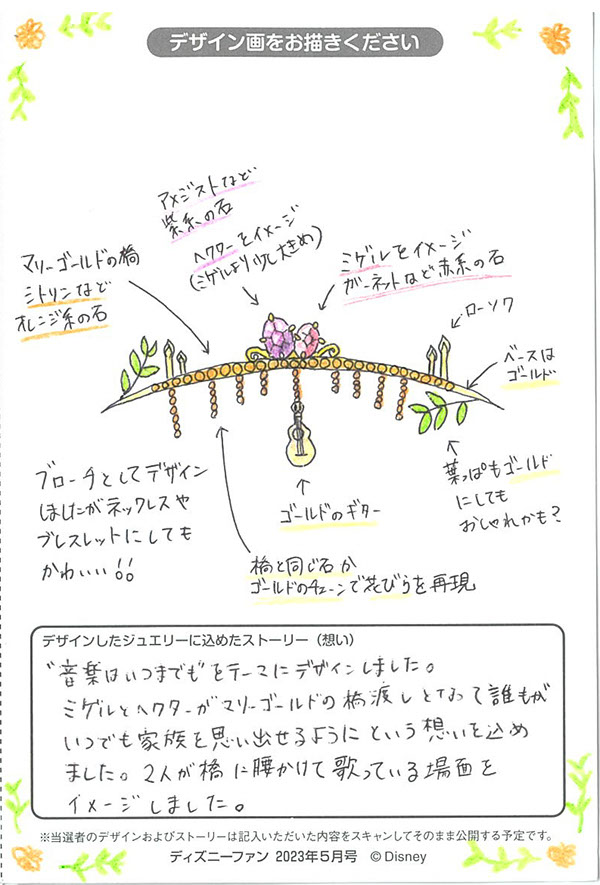 デザイン画をお描きください
アメジストなど
紫系の石
ヘクターをイメージ
(ミゲルより少し大きめ)
マリーゴールドの橋
シトリンなど
オレンジ系の石
ミゲルをイメージ
ガーネットなど赤系の石
ローソク
ベースは
ゴールド
ブローチとしてデザイン
しましたがネックレスや
ブレスレットにしても
かわいい!!
ゴールドのギター
葉っぱもゴールド
にしても
おしゃれかも?
橋と同じ石か
ゴールドのチェーンで花びらを再現
デザインしたジュエリーに込めたストーリー(想い)
"音楽はいつまでも"をテーマにデザインしました。
ミゲルとヘクターがマリーゴールドの橋渡しとなって誰もが
いつでも家族を思い出せるようにという想いを込め
ました。2人が橋に腰かけて歌っている場面を
イメージしました。
※当選者のデザインおよびストーリーは記入いただいた内容をスキャンしてそのまま公開する予定です。
ディズニーファン 2023年5月号 ©Disney